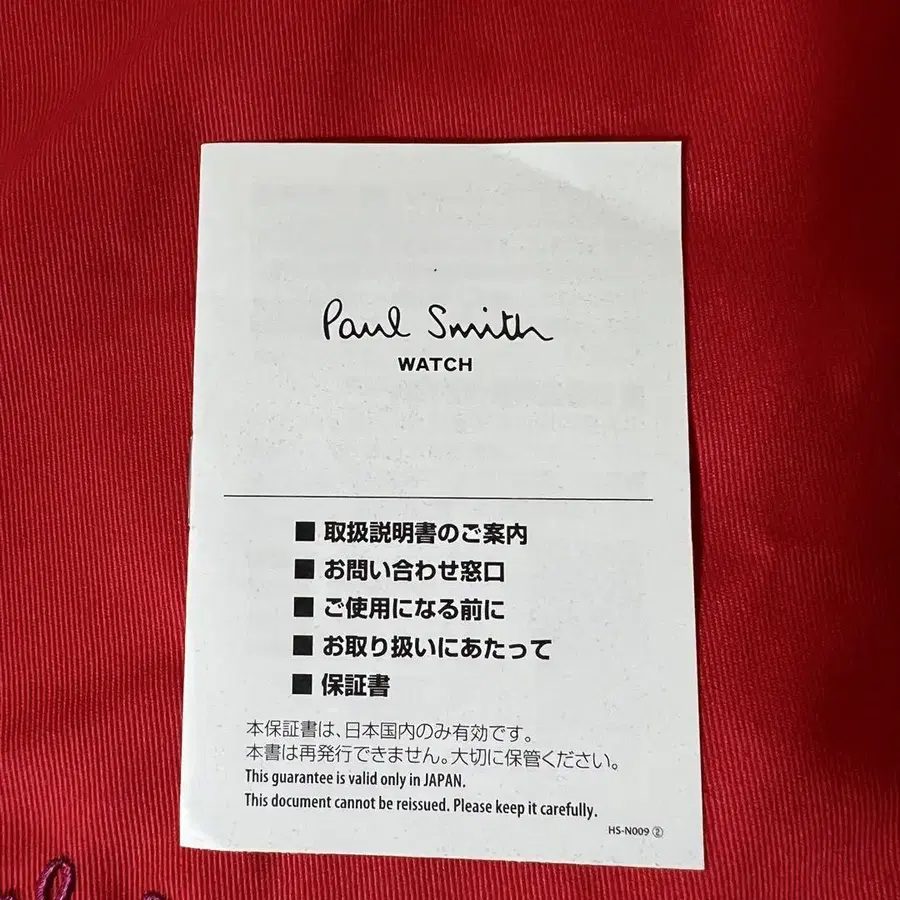 Paul Smith
WATCH
■ 取扱説明書のご案内
■ お問い合わせ窓口
■ ご使用になる前に
■ お取り扱いにあたって
■ 保証書
本保証書は、日本国内のみ有効です。
本書は再発行できません。大切に保管ください。
This guarantee is valid only in JAPAN.
This document cannot be reissued. Please keep it carefully.
HS-N009 ②